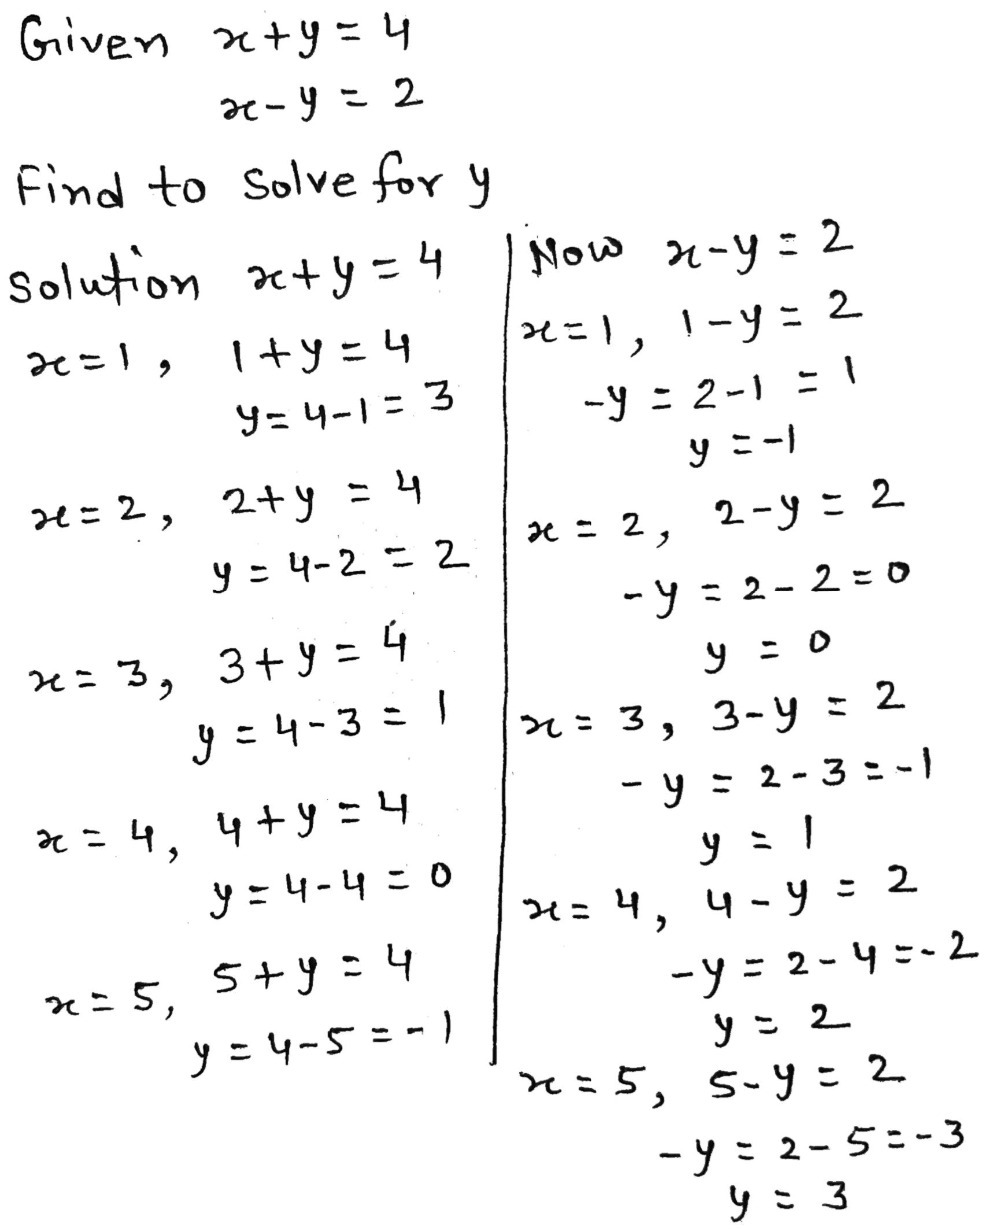 Given x+y = 4
x-y = 2
Find to solve for y
Solution x+y = 4
x=1, 1+y = 4
y=4-1 = 3
x=2, 2+y = 4
y = 4-2 = 2
x=3, 3+y = 4
y = 4-3 = 1
x=4, 4+y = 4
y = 4-4 = 0
x=5, 5+y = 4
y = 4-5 = -1
Now x-y = 2
x=1, 1-y = 2
-y = 2-1 = 1
y = -1
x = 2, 2-y = 2
-y = 2-2 = 0
y = 0
x = 3, 3-y = 2
-y = 2-3 = -1
y = 1
x = 4, 4-y = 2
-y = 2-4 = -2
y = 2
x = 5, 5-y = 2
-y = 2-5 = -3
y = 3